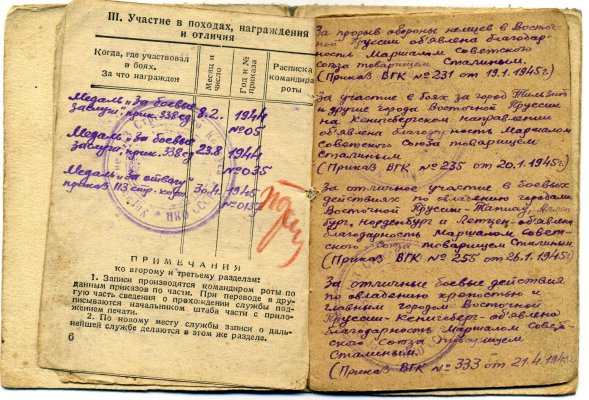 III. Участие в походах, награждения
и отличия
Когда, где участвовал
в боях.
За что награжден
Месяц и
число
Год и №
приказа
Расписка
командира
роты
Медаль „За боевые
заслуги" прик. 338 сд
8.2.
1944
№05
Медаль „За боевые
заслуги" прик. 338 сд
23.8
1944
№035
Медаль „За отвагу"
приказ 113 стр.
30.4.
1945
ПРИМЕЧАНИЯ
ко второму и третьему разделам:
1. Записи производятся командиром роты по
данным приказов по части. При переводе в дру-
гую часть сведения о прохождении службы под-
писываются начальником штаба части с прило-
жением печати.
2. По новому месту службы записи о даль-
нейшей службе делаются в этом же разделе.
6
За прорыв обороны немцев в Восточ-
ной Пруссии объявлена благодар-
ность Маршалом Советского
Союза товарищем Сталиным.
(Приказ ВГК №231 от 19.1.1945г)
За участие в боях за город Тильзит
и другие города Восточной Пруссии
на Кенигсберском направлении
объявлена благодарность Маршалом
Советского Союза товарищем
Сталиным
(Приказ ВГК №235 от 20.1.1945г)
За отличное участие в боевых
действиях по овладению городами
Восточной Пруссии-
бург, Норденбург и Летцен-объявлена
благодарность Маршалом Совет-
ского Союза товарищем Сталиным
(Приказ ВГК №255 от 26.1.1945г)
За отличные боевые действия
по овладению крепостью и
главным городом Восточной
Пруссии-Кенигсберг-объявлена
благодарность Маршалом Совет-
ского Союза товарищем
Сталиным.
(Приказ ВГК №333 от 21.4.1945г)